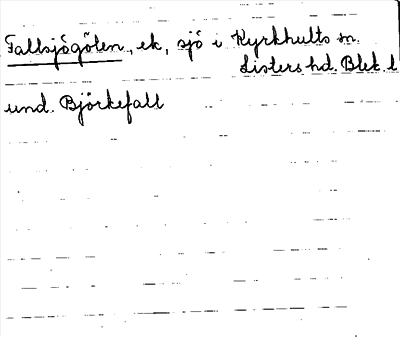 Fallsjögölen, ek, sjö i Kyrkhults sn.
Listers hd. Blek. l
und. Björkefall